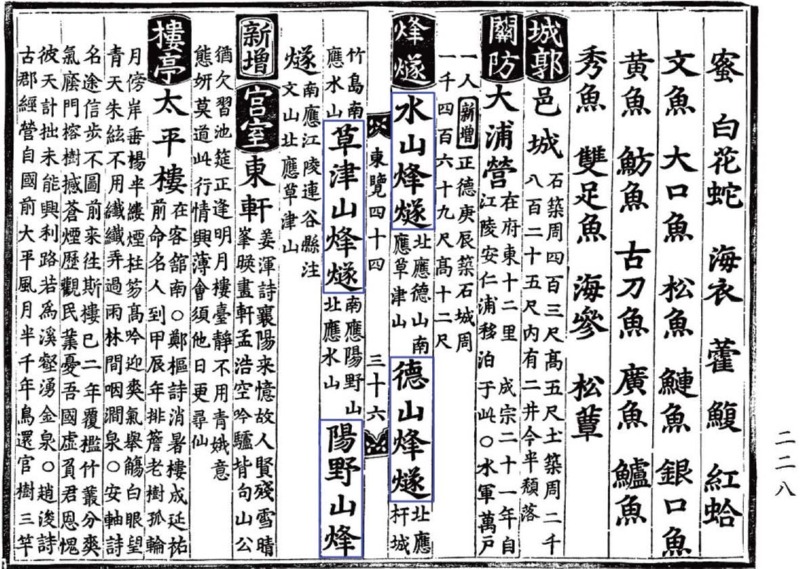 蜜 白花蛇 海衣 藿 鰒 紅蛤
文魚 大口魚 松魚 鰱魚 銀口魚
黃魚 魴魚 古刀魚 廣魚 鱸魚
秀魚 雙足魚 海參 松蕈
城郭 邑城 石築周四百三尺高五尺土築周二千
八百二十五尺內有二井今半頹落
關防 大浦營 在府東十二里 成宗二十一年自
江陵安仁浦移泊于此○水軍萬戶
一人 新增 正德庚辰築石城周
一千四百六十九尺高十二尺
烽燧 水山烽燧 北應德山南應草津山 德山烽燧 北應杆城
東覽四十四 三十六
竹島南應水山 草津山烽燧 南應陽野山北應水山 陽野山烽
燧 南應江陵連谷縣注
文山北應草津山
新增 宮室 東軒 姜渾詩襄陽来憶故人賢殘雪晴
峯暎畫軒孟浩空吟驢背句山公
猶欠習池筵正逢明月樓臺靜不用青娥意
態妍莫道此行情興薄會須他日更尋仙
樓亭 太平樓 在客舘南○鄭樞詩消暑樓成延祐
前命名人到甲辰年排簷老樹孤輪
月傍岸垂楊半縷煙拄笏高吟迎爽氣舉觴白眼望
青天朱絃不用纖纖弄過雨林間咽澗泉○安軸詩
名途信步不圖前来往斯樓已二年覆檻竹叢分爽
氣廕門榕樹撼蒼煙歷觀民業憂吾國虛負君恩愧
彼天計拙未能興利路若爲溪壑湧金泉○趙浚詩
古郡經營自國前大平風月半千年鳥還官樹三竿
二二八